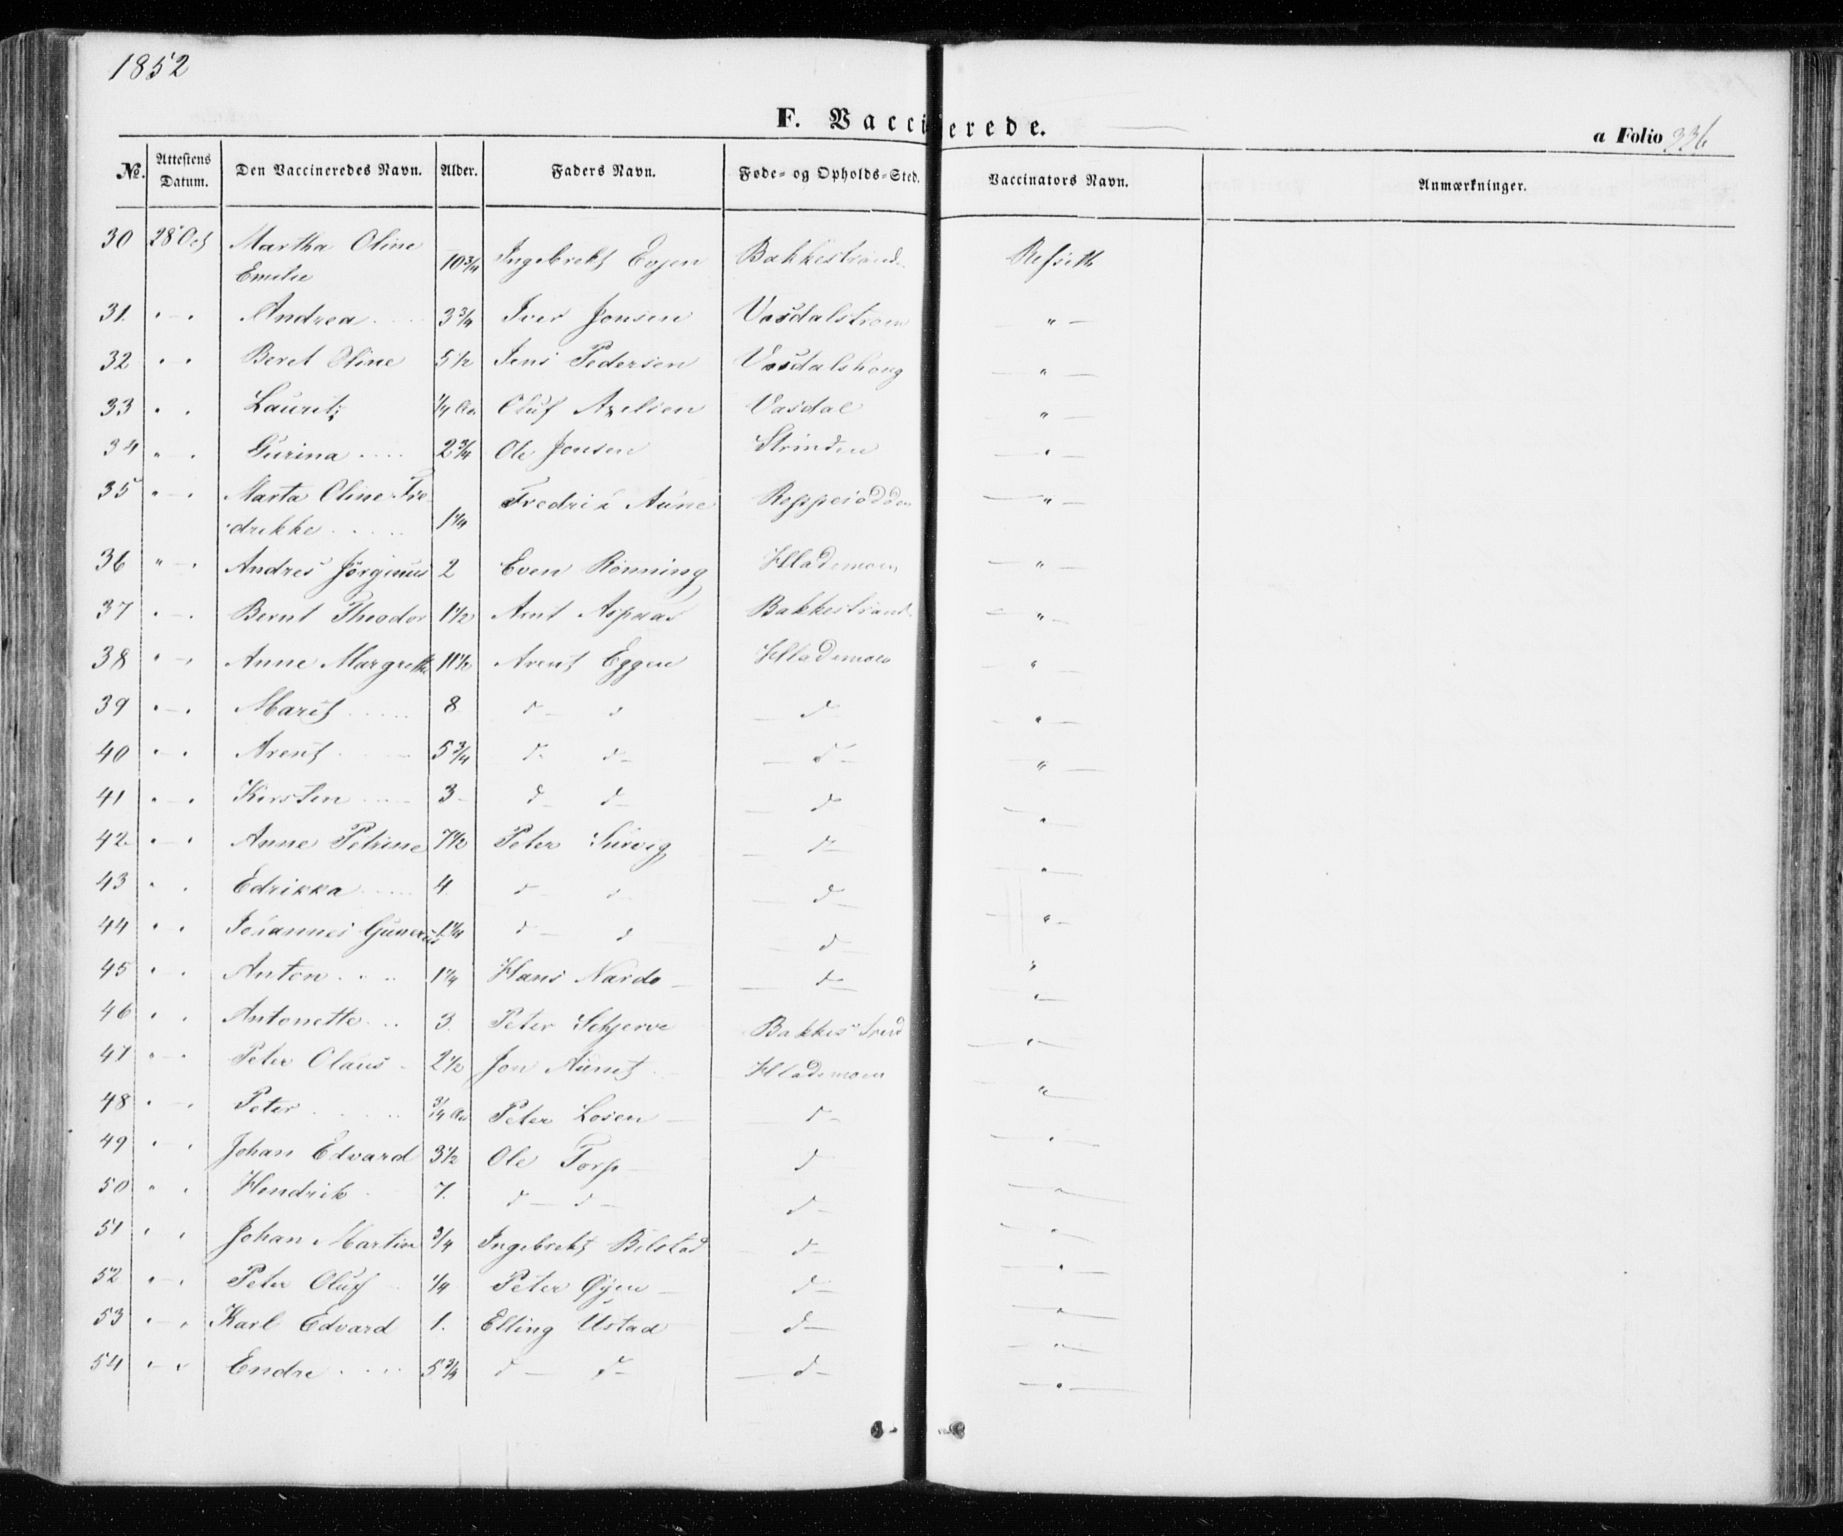 1852
F. Vaccinerede.
a Folio 336
No. Attestens Datum. Den Vaccineredes Navn. Alder. Faders Navn. Føde- og Opholds-Sted. Vaccinators Navn. Anmærkninger.
30 28 Oct Martha Oline Emelie 10 3/4 Ingebrekt Bakkestrand
31. " - " Andrea 3 3/4 Iver Jonsen Vasdalstrøm " -
32 " " Beret Oline 5 1/2 Jens Pedersen Vasdalshoug " -
33 " " Lauritz 1/4 Oluf Axelsen Vasdal "
34 " " Gurina 2 3/4 Ole Jonsen Strinden "
35 " - " Marta Oline Fre drikke 1 1/4 Fredrik Aune Reppesodden "
36 " - " Andres Jørginus 2 Even Rønning Hlademoen "
37 " - " Bernt Theodor 1 1/2 Arnt Aspaas Bakkestrand "
38 " - " Anne Margrethe 11 1/2 Arent Eggen Hlademoen "
39 " - " Marit 8 d - d d "
40 " - " Arent 5 3/4 d - d - d - "
41 " - " Kirsten 3 - d - d - d "
42 " - " Anne Petrine 7 1/2 Peter Survig d - "
43 " " Edrikka 4 d - d - d - "
44 " " Johannes Gunerus 1 1/4 d - d d - "
45 " - " Anton 1 1/4 Hans Nardo d - "
46 " " Antonette 3. Peter Schjerve Bakkestrand "
47 " - " Peter Olaus 2 1/2 Jon Hlademoen "
48 " - " Peter 3/4 Peter Losen d - "
49 " - " Johan Edvard 3 1/2 Ole Torp d "
50 " " Hendrik 7. d - d - d - "
51 " " Johan Martin 3/4 Ingebrekt Bilstad d - "
52 " - " Peter Oluf 1/4 Peter Øyen d - "
53 " - " Karl Edvard 1. Elling Ustad d - "
54 " - " Endre 5 3/4 d - d - d - "